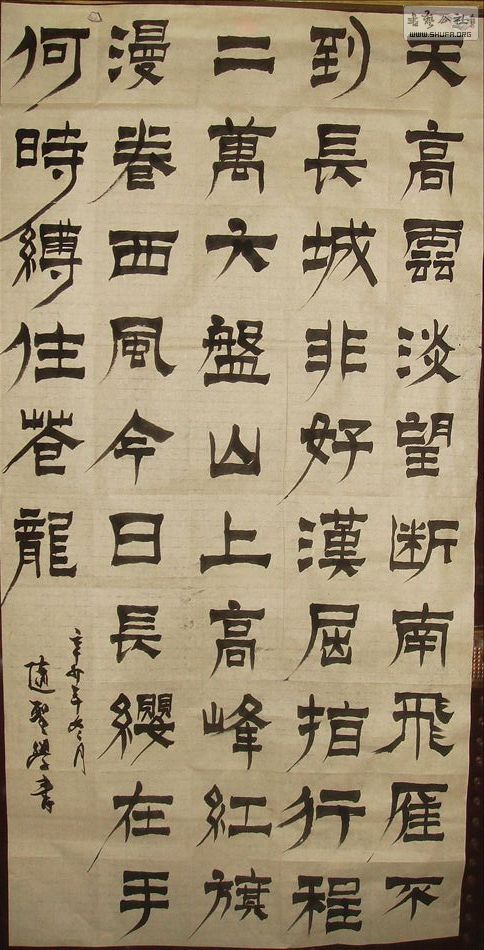 天高雲淡望断南飛雁不
到長城非好漢屈指行程
二萬六盤山上高峰紅旗
漫卷西風今日長纓在手
何時縛住蒼龍
書
WWW.SHUFA.ORG